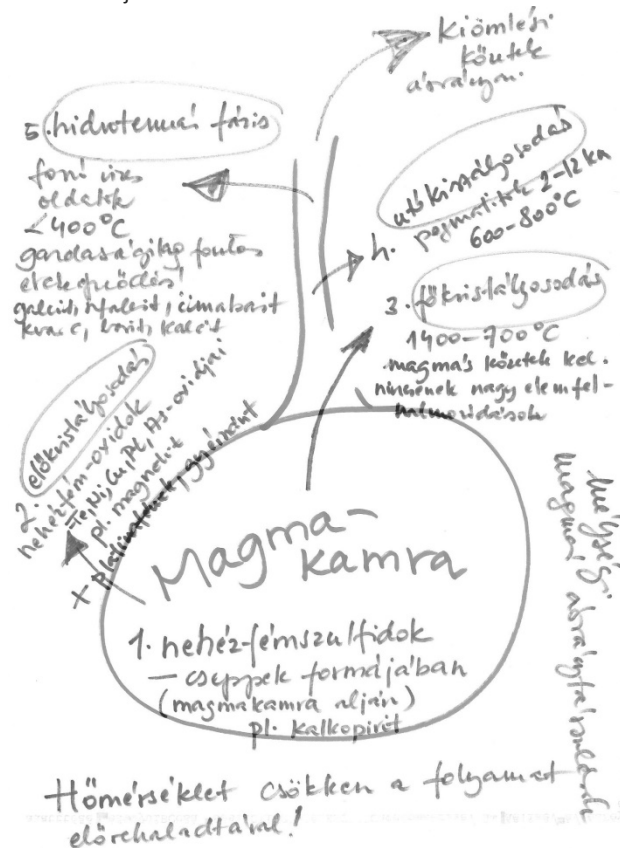 Kiömlési
kőzetek
ásványai
5. hidrotermás fázis
forró vizes
oldatok
<400°C
gazdaságilag fontos
érckepződés!
galenit, szfalerit, cinnabarit
kvarc, barit, kalcit
utókristályosodás
h. pegmatitok 2-12 km
600-800°C
3. főkristályosodás
1400-700°C
magmás kőzetek kel.
nincsenek nagy elemfel-
halmozódások
előkristályosodás
2.
nehézfém-oxidok
-Fe, Ni, Cu, Pb, As-oxidjai
pl. magnetit
+ platinafémek, gyémánt
Magma-
kamra
1. nehéz-fémszulfidok
- cseppek formájában
(magmakamra alján)
pl. kalkopirit
mélységi
magmai ásványtársulások
Hőmérséklet csökken a folyamat
előrehaladtával!